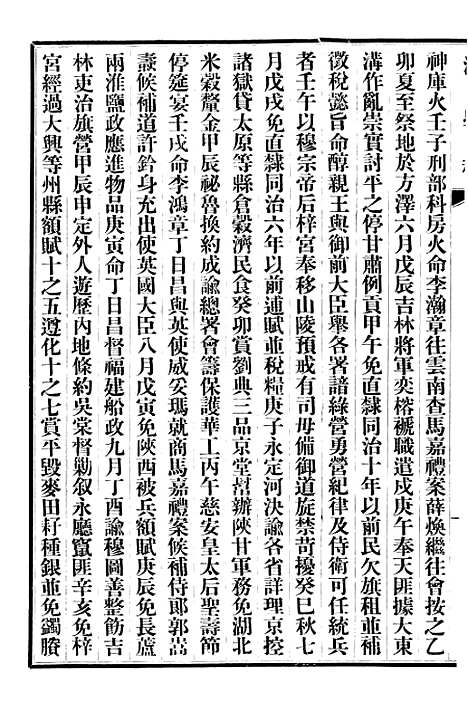 神庫火壬子刑部科房火命李瀚章往雲南查馬嘉禮案薛煥繼往會按之乙
卯夏至祭地於方澤六月戊辰吉林將軍奕榕褫職遣戍庚午奉天匪擾大東
溝作亂崇實討平之停甘肅例貢甲午免直隸同治十年以前民欠旗租並補
徵稅懿旨命醇親王與御前大臣舉各署諳綠營勇營紀律及侍衛可任統兵
者壬午以穆宗帝后梓宮奉移山陵預戒有司毋備御道旋禁苛擾癸巳秋七
月戊戌免直隸同治六年以前逋賦並稅糧庚子永定河決諭各省詳理京控
諸獄貸太原等縣倉穀濟民食癸卯賞劉典三品京堂幫辦陝甘軍務免湖北
米穀釐金甲辰祕魯換約成諭總署會籌保護華工丙午慈安皇太后聖壽節
停筵宴壬戌命李鴻章丁日昌與英使威妥瑪就商馬嘉禮案候補侍郎郭嵩
燾候補道許鈐身充出使英國大臣八月戊寅免陝西被兵額賦庚辰免長蘆
兩淮鹽政應進物品庚寅命丁日昌督福建船政九月丁酉諭穆圖善整飭吉
林吏治旗營甲辰申定外人遊歷內地條約吳棠督勦敘永廳竄匪辛亥免梓
宮經過大興等州縣額賦十之五遵化十之七賞平毀麥田耔種銀並免蠲賸